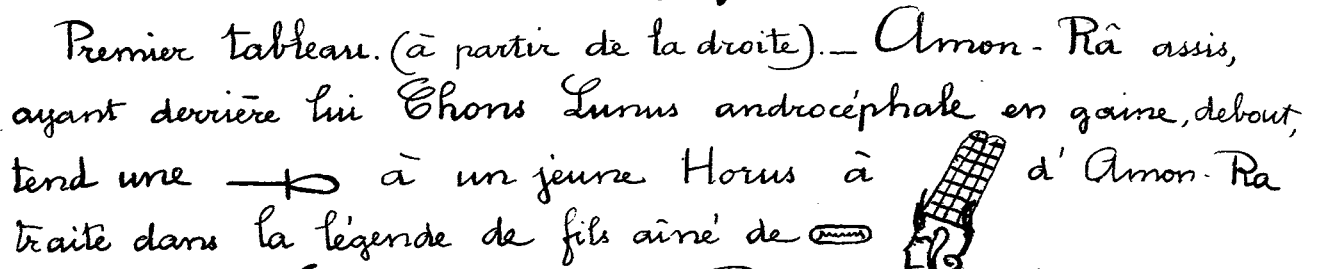 Premier tableau. (à partir de la droite). _ Amon-Râ assis,
ayant derrière lui Chons Lunus androcéphale en gaine, debout,
tend une à un jeune Horus à d'Amon-Ra
traité dans la légende de fils aîné de